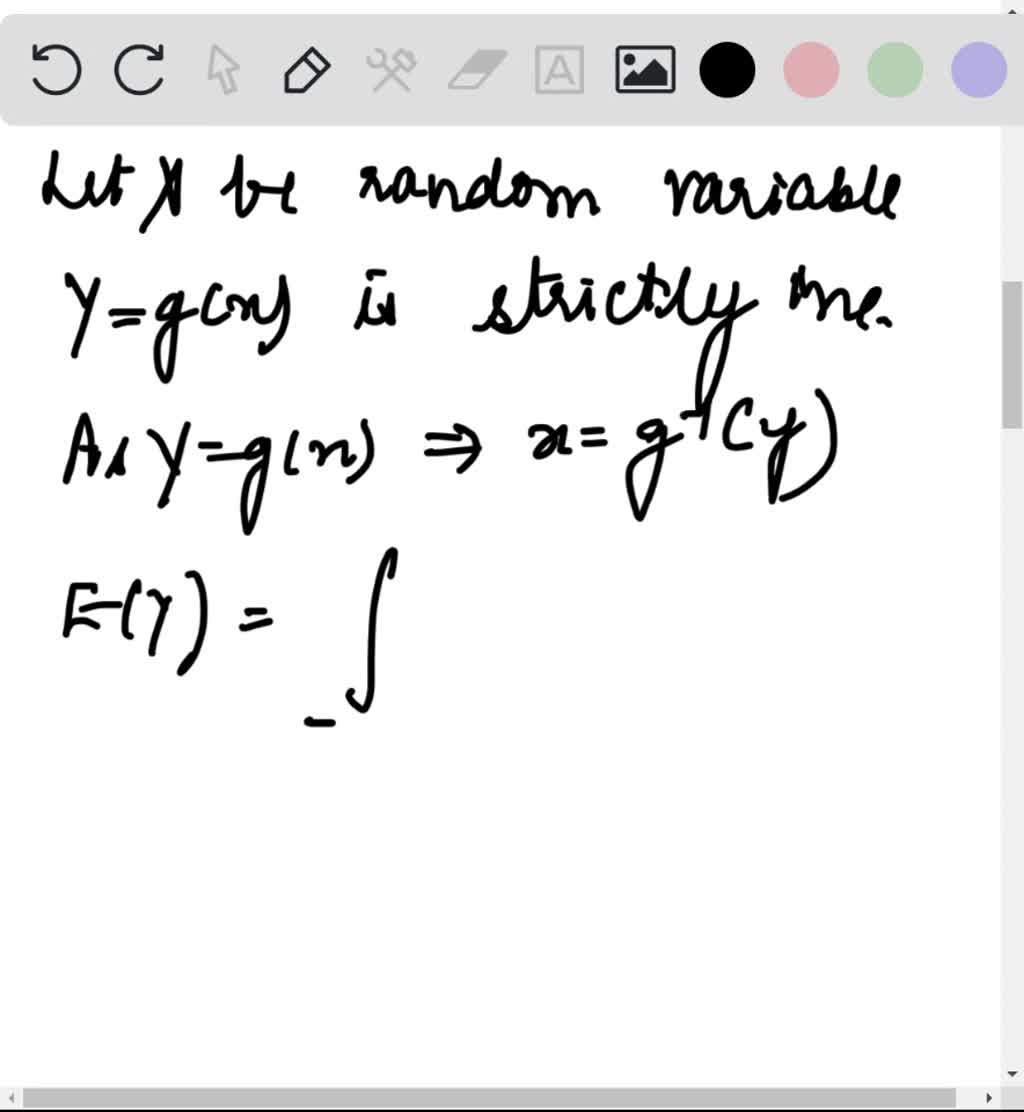 Let X be random variable
Y=g(x) is strictly
As Y=g(x) ⇒ x=g⁻¹(y)
E(Y) = ∫
-